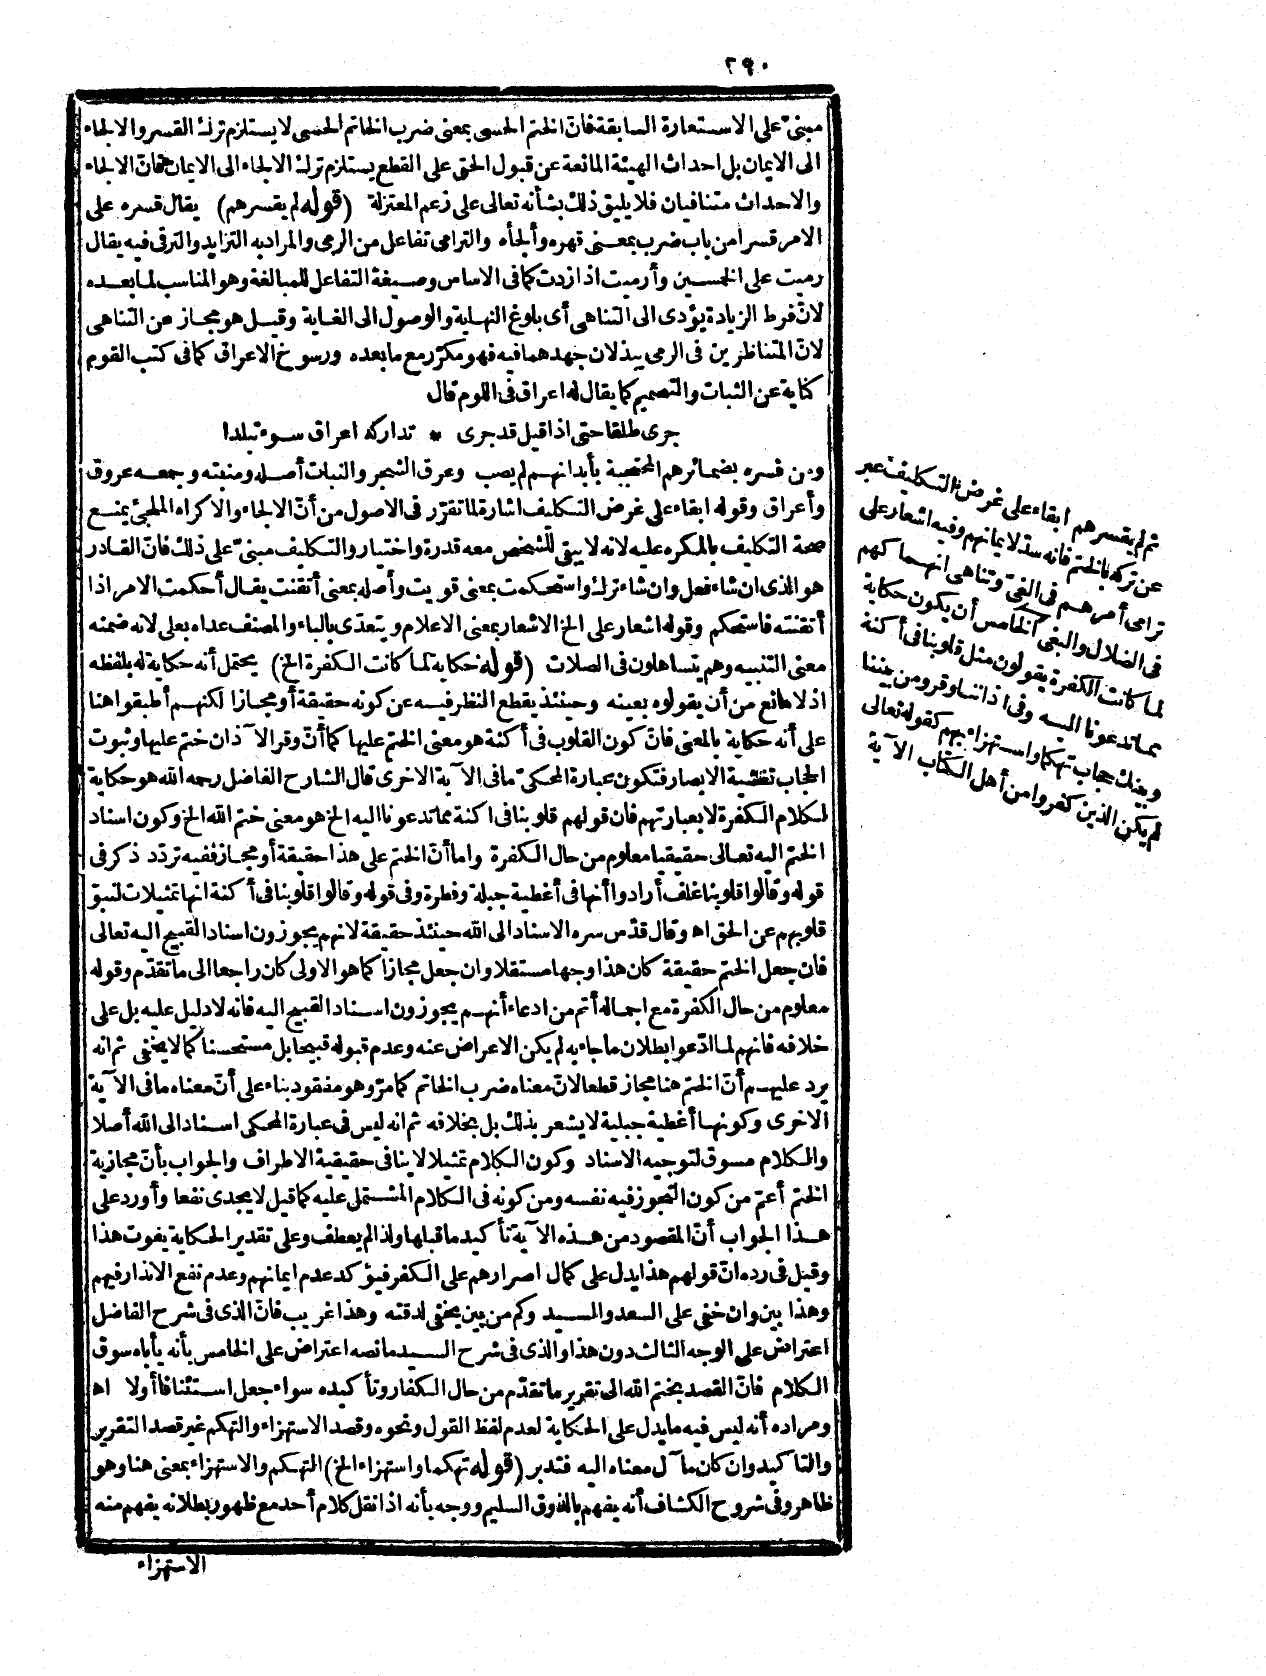 ٢٩٠
مبنىّ على الاستعارة السابقة فانّ الختم الحسى بمعنى ضرب الخاتم الحسى لا يستلزم ترك القسر والالجاء
الى الايمان بل احداث الهيئة المانعة عن قبول الحق على القطع يستلزم ترك الالجاء الى الايمان فانّ الالجاء
والاحداث متنافيان فلا يليق ذلك بشأنه تعالى على زعم المعتزلة (قوله لم يقسرهم) يقال قسره على
الامر قسرا من باب ضرب بمعنى قهره وألجأه والترامى تفاعل من الرمى والمراد به التزايد والترقى فيه يقال
رميت على الخمسين وأرميت اذا زدت كما فى الاساس وصيغة التفاعل للمبالغة وهو المناسب لما بعده
لانّ فرط الزيادة يؤدى الى التناهى أى بلوغ النهاية والوصول الى الغاية وقيل هو مجاز عن التناهى
لانّ المتناظرين فى الرمى يبذلان جهدهما فيه فهو مكرّر مع ما بعده ورسوخ الاعراق كما فى كتب القوم
كناية عن الثبات والتصميم كما يقال له اعراق فى اللوم قال
جرى طلقا حتى اذا قيل قد جرى * تداركه اعراق سوء تبلدا
ومن فسره بضمائرهم المحتجبة بأبدانهم لم يصب وعرق الشجر والنبات أصله ومنبته وجمعه عروق
وأعراق وقوله ابقاء على غرض التسكليف اشارة لما تقرّر فى الاصول من أنّ الالجاء والاكراه الملجئ يمنع
صحة التكليف بالمكره عليه لانه لا يبقى للشخص معه قدرة واختيار والتكليف مبنىّ على ذلك فانّ القادر
هو الذى ان شاء فعل وان شاء ترك واستحكمت بمعنى قويت وأصله بمعنى أتقنت يقال أحكمت الامر اذا
أتقنته فاستحكم وقوله اشعار على الخ الاشعار بمعنى الاعلام ويتعدّى بالباء والمصنف عداه بعلى لانه ضمنه
معنى التنبيه وهم يتساهلون فى الصلات (قوله حكاية لما كانت الكفرة الخ) يحتمل أنه حكاية له بلفظه
اذ لا مانع من أن يقولوه بعينه وحينئذ يقطع النظر فيه عن كونه حقيقة أو مجازا لكنهم أطبقوا هنا
على أنه حكاية بالمعنى فانّ كون القلوب فى أكنة هو معنى الختم عليها كما أنّ وقر الآذان ختم عليها وثبوت
الحجاب تغشية الابصار فتكون عبارة المحكىّ ما فى الآية الاخرى قال الشارح الفاضل رحمه الله هو حكاية
لكلام الكفرة لا بعبارتهم فان قولهم قلوبنا فى اكنة مما تدعونا اليه الخ هو معنى ختم الله الخ وكون اسناد
الختم اليه تعالى حقيقيا معلوم من حال الكفرة واما أنّ الختم على هذا حقيقة أو مجاز ففيه تردّد ذكر فى
قوله وقالوا قلوبنا غلف أرادوا أنها فى أغطية جبلة وفطرة وفى قوله وقالوا قلوبنا فى أكنة انها تمثيلات لنبوّ
قلوبهم عن الحق اه وقال قدّس سره الاسناد الى الله حينئذ حقيقة لانهم يجوزون اسناد القبيح اليه تعالى
فان جعل الختم حقيقة كان هذا وجها مستقلا وان جعل مجازا كما هو الاولى كان راجعا الى ما تقدّم وقوله
معلوم من حال الكفرة مع اجماله أتم من ادعاء أنهم يجوزون اسناد القبيح اليه فانه لا دليل عليه بل على
خلافه فانهم لما ادّعوا بطلان ما جاء به لم يكن الاعراض عنه وعدم قبوله قبيحا بل مستحسنا كما لا يخفى ثم انه
يرد عليهم أنّ الختم هنا مجاز قطعا لانّ معناه ضرب الخاتم كما مرّ وهو مفقود بناء على أنّ معناه ما فى الآية
الاخرى وكونها أغطية جبلية لا يشعر بذلك بل بخلافه ثم انه ليس فى عبارة المحكى اسناد الى الله أصلا
والكلام مسوق لتوجيه الاسناد وكون الكلام تمثيلا لا ينافى حقيقية الاطراف والجواب بأنّ مجازية
الختم أعم من كون التجوز فيه نفسه ومن كونه فى الكلام المشتمل عليه كما قيل لا يجدى نفعا وأورد على
هذا الجواب أنّ المقصود من هذه الآية تأكيد ما قبلها ولذا لم يعطف وعلى تقدير الحكاية يفوت هذا
وقيل فى رده انّ قولهم هذا يدل على كمال اصرارهم على الكفر فيؤكد عدم ايمانهم وعدم نفع الانذار فيهم
وهذا بين وان خفى على السعد والسيد وكم من بين يخفى لدقته وهذا غريب فانّ الذى فى شرح الفاضل
اعتراض على الوجه الثالث دون هذا والذى فى شرح السيد ما نصه اعتراض على الخامس بأنه يأباه سوق
الكلام فانّ القصد بختم الله الى تقرير ما تقدّم من حال الكفار وتأكيده سواء جعل استئنافا أولا اه
ومراده أنه ليس فيه ما يدل على الحكاية لعدم لفظ القول ونحوه وقصد الاستهزاء والتهكم غير قصد التقرير
والتاكيد وان كان مآل معناه اليه فتدبر (قوله تهكما واستهزاء الخ) التهكم والاستهزاء بمعنى هنا وهو
ظاهر وفى شروح الكشاف أنه يفهم بالذوق السليم ووجه بأنه اذا نقل كلام أحد مع ظهور بطلانه يفهم منه
الاستهزاء
ثم لم يقسرهم ابقاء على غرض التسكليف عبر
عن تركه بالختم فانه سدّ لايمانهم وفيه اشعار على
ترامى أمرهم فى الغىّ وتناهى انهماكهم
فى الضلال والبغى الخامس أن يكون حكاية
لما كانت الكفرة يقولون مثل قلوبنا فى أكنة
مما تدعونا اليه وفى اذاننا وقر ومن بيننا
وبينك حجاب تهكما واستهزاء بهم كقوله تعالى
لم يكن الذين كفروا من أهل الكتاب الآية